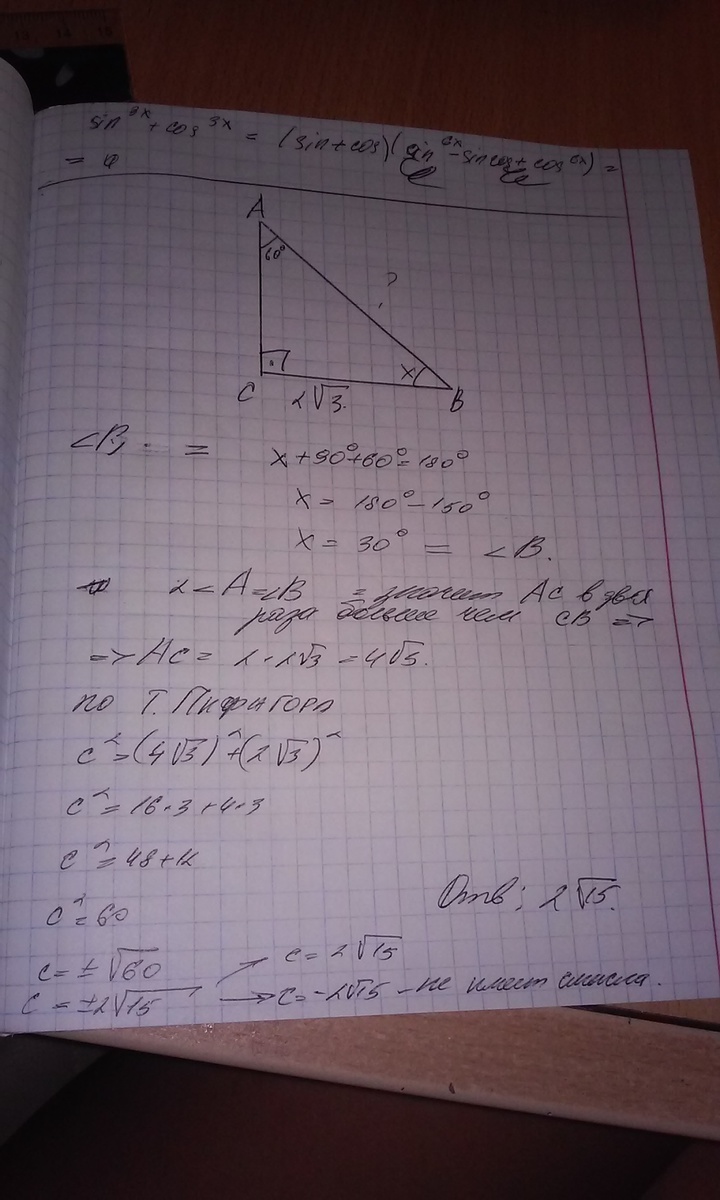 sin³ˣ + cos³ˣ = (sin + cos)(sin⁶ˣ - sin cos + cos⁶ˣ) =
=
A
60°
?
x
C
2√3.
B
∠B, =
x + 90° + 60° = 180°
x = 180° - 150°
x = 30° = ∠B.
2∠A = ∠B = значит AC в два
раза больше чем CB =>
=> AC = 2 · 2√3 = 4√3.
по Т. Пифагора
c² = (4√3)² + (2√3)²
c² = 16·3 + 4·3
c² = 48 + 12
c² = 60
Отв: 2√15.
c = ±√60
c = 2√15
c = ±2√15
c = -2√15 - не имеет смысла.